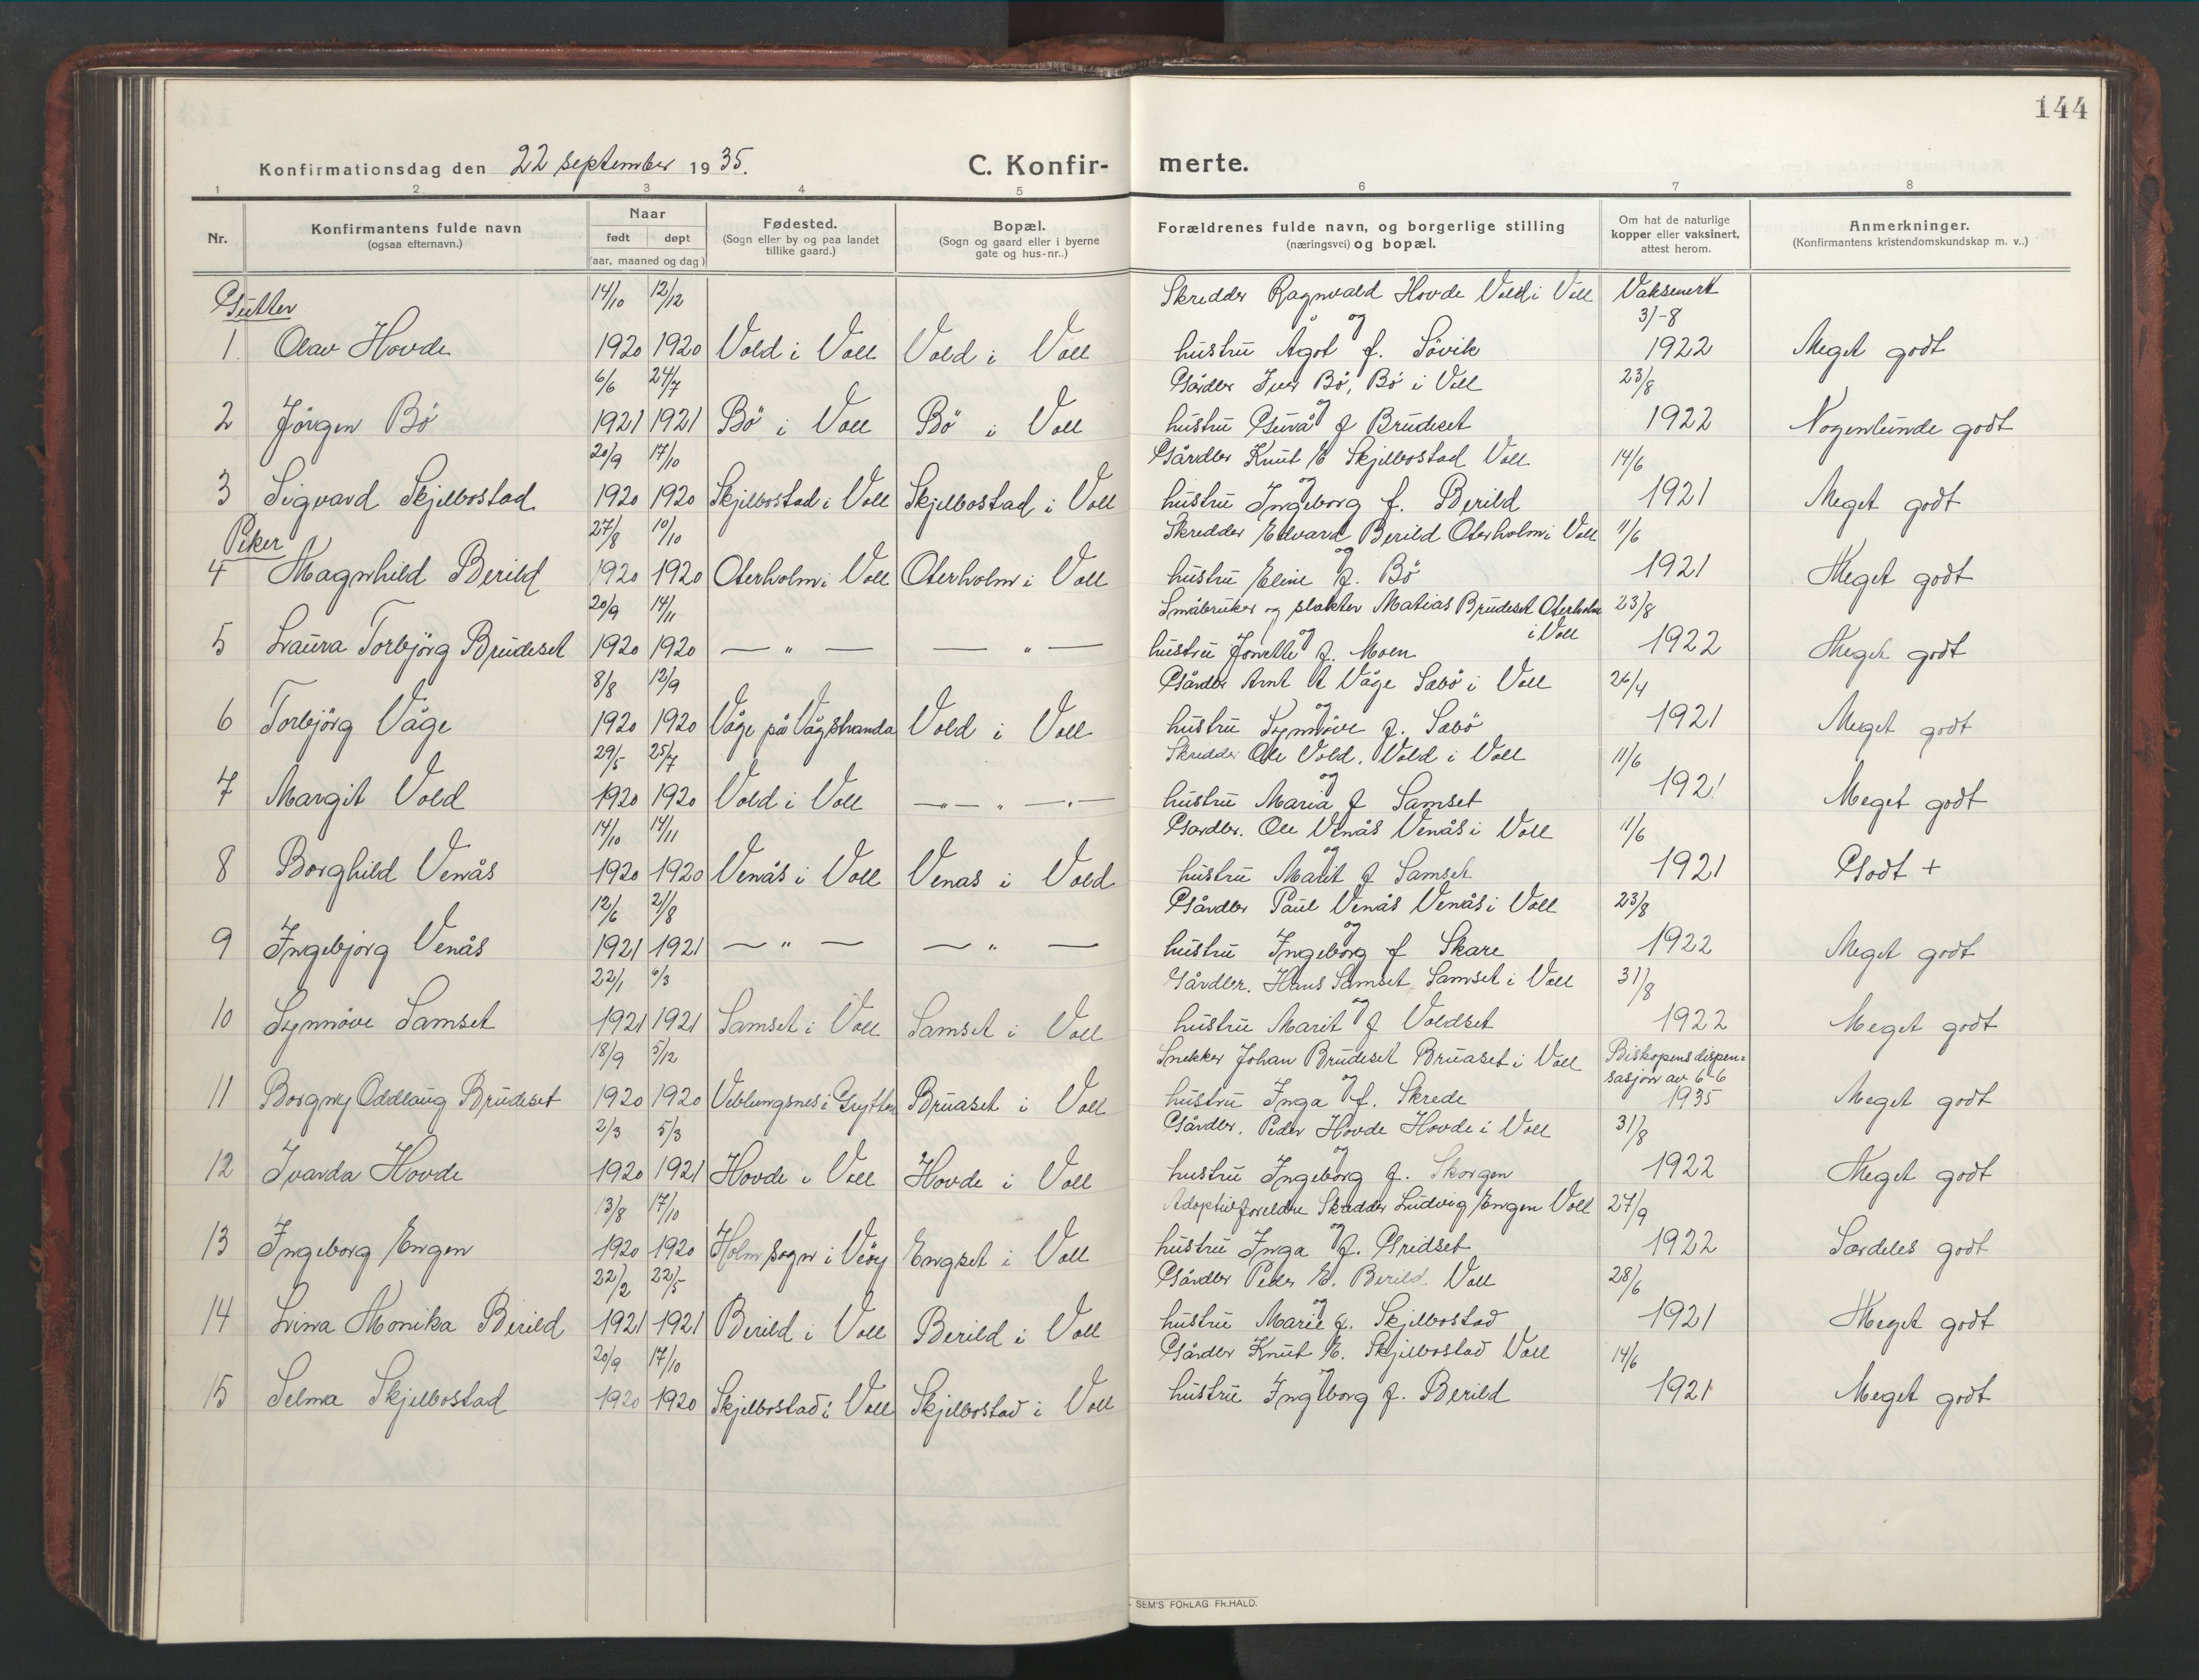 144
Konfirmationsdag den 22 september 1935.
C. Konfir- merte.
1 2 3 4 5 6 7 8
Nr. Konfirmantens fulde navn (ogsaa efternavn.) Naar født døpt (aar, maaned og dag) Fødested. (Sogn eller by og paa landet tillike gaard.) Bopæl. (Sogn og gaard eller i byerne gate og hus-nr..) Forældrenes fulde navn, og borgerlige stilling (næringsvei) og bopæl. Om hat de naturlige kopper eller vaksinert, attest herom. Anmerkninger. (Konfirmantens kristendomskundskap m. v..)
Gutter 14/10 12/12 Skredder Ragnvald Hovde Vold i Voll Vaksinert 31-8
1. Olav Hovde 1920 1920 Vold i Voll Vold i Voll og hustru Ågot f. Sövik 1922 Meget godt
6/6 24/7 Gårdbr Iver Bö, Bö i Voll 23/8
2 Jörgen Bö 1921 1921 Bö i Voll Bö i Voll og hustru Guvå f Brudeset 1922 Nogenlunde godt
20/9 17/10 Gårdbr Knut E Skjelbostad Voll 14/6
3 Sigvard Skjelbostad 1920 1920 Skjelbostad i Voll Skjelbostad i Voll og hustru Ingeborg f. Berild 1921 Meget godt
Piker 27/8 10/10 Skredder Edvard Berild Oterholm i Voll 11/6
4 Magnhild Berild 1920 1920 Oterholm i Voll Oterholm i Voll og hustru Eline f. Bö 1921 Meget godt
20/9 14/11 Småbruker og slakter Matias Brudeset Oterholm i Voll 23/8
5 Laura Torbjörg Brudeset 1920 1920 — " — — " — og hustru Jonette f. Moen 1922 Meget godt
8/8 12/9 Gårdbr Arnt A Våge Sæbö i Voll 26/4
6 Torbjörg Våge 1920 1920 Våge på Vågstranda Vold i Voll og hustru Synnöve f. Sæbö 1921 Meget godt
29/5 25/7 Skredder Ole Vold. Vold i Voll 11/6
7 Margit Vold 1920 1920 Vold i Voll —"— " —"— og hustru Maria f Samset 1921 Meget godt
14/10 14/11 Gardbr. Ole Venås Venås i Voll 11/6
8 Borghild Venås 1920 1920 Venås i Voll Venas i Vold og hustru Marit f Samset 1921 Godt +
12/6 21/8 Gårdbr Paul Venås Venås i Voll 23/8
9 Ingebjörg Venås 1921 1921 — " — — " — og hustru Ingeborg f Skare 1922 Meget godt
22/1 6/3 Gårdbr. Hans Samset Samset i Voll 31/8
10 Synnöve Samset 1921 1921 Samset i Voll Samset i Voll og hustru Marit f Voldset 1922 Meget godt
18/9 5/12 Snekker Johan Brudeset Bruaset i Voll Biskopens dispen= sasjon av 6-6
11 Borgny Oddlaug Brudeset 1920 1920 Veblungsnes i Grytten Bruaset i Voll og hustru Inga f. Skrede 1935 Meget godt
2/3 5/3 Gårdbr. Peder Hovde Hovde i Voll 31/8
12 Ivarda Hovde 1920 1921 Hovde i Voll Hovde i Voll og hustru Ingeborg f. Skorgen 1922 Meget godt
13/8 17/10 Adoptivforeldre Skredder Ludvig Engen Voll 27/9
13 Ingeborg Engen 1920 1920 Holm sogn i Veöy Engset i Voll og hustru Inga f. Gridset 1922 Særdeles godt
22/2 22/5 Gårdbr Peder E. Berild Voll 28/6
14 Lina Monika Berild 1921 1921 Berild i Voll Berild i Voll og hustru Marie f. Skjelbostad 1921 Meget godt
20/9 17/10 Gårdbr Knut E. Skjelbostad Voll 14/6
15 Selma Skjelbostad 1920 1920 Skjelbostad i Voll Skjelbostad i Voll og hustru Ingeborg f. Berild 1921 Meget godt
SEM'S FORLAG FR.HALD.